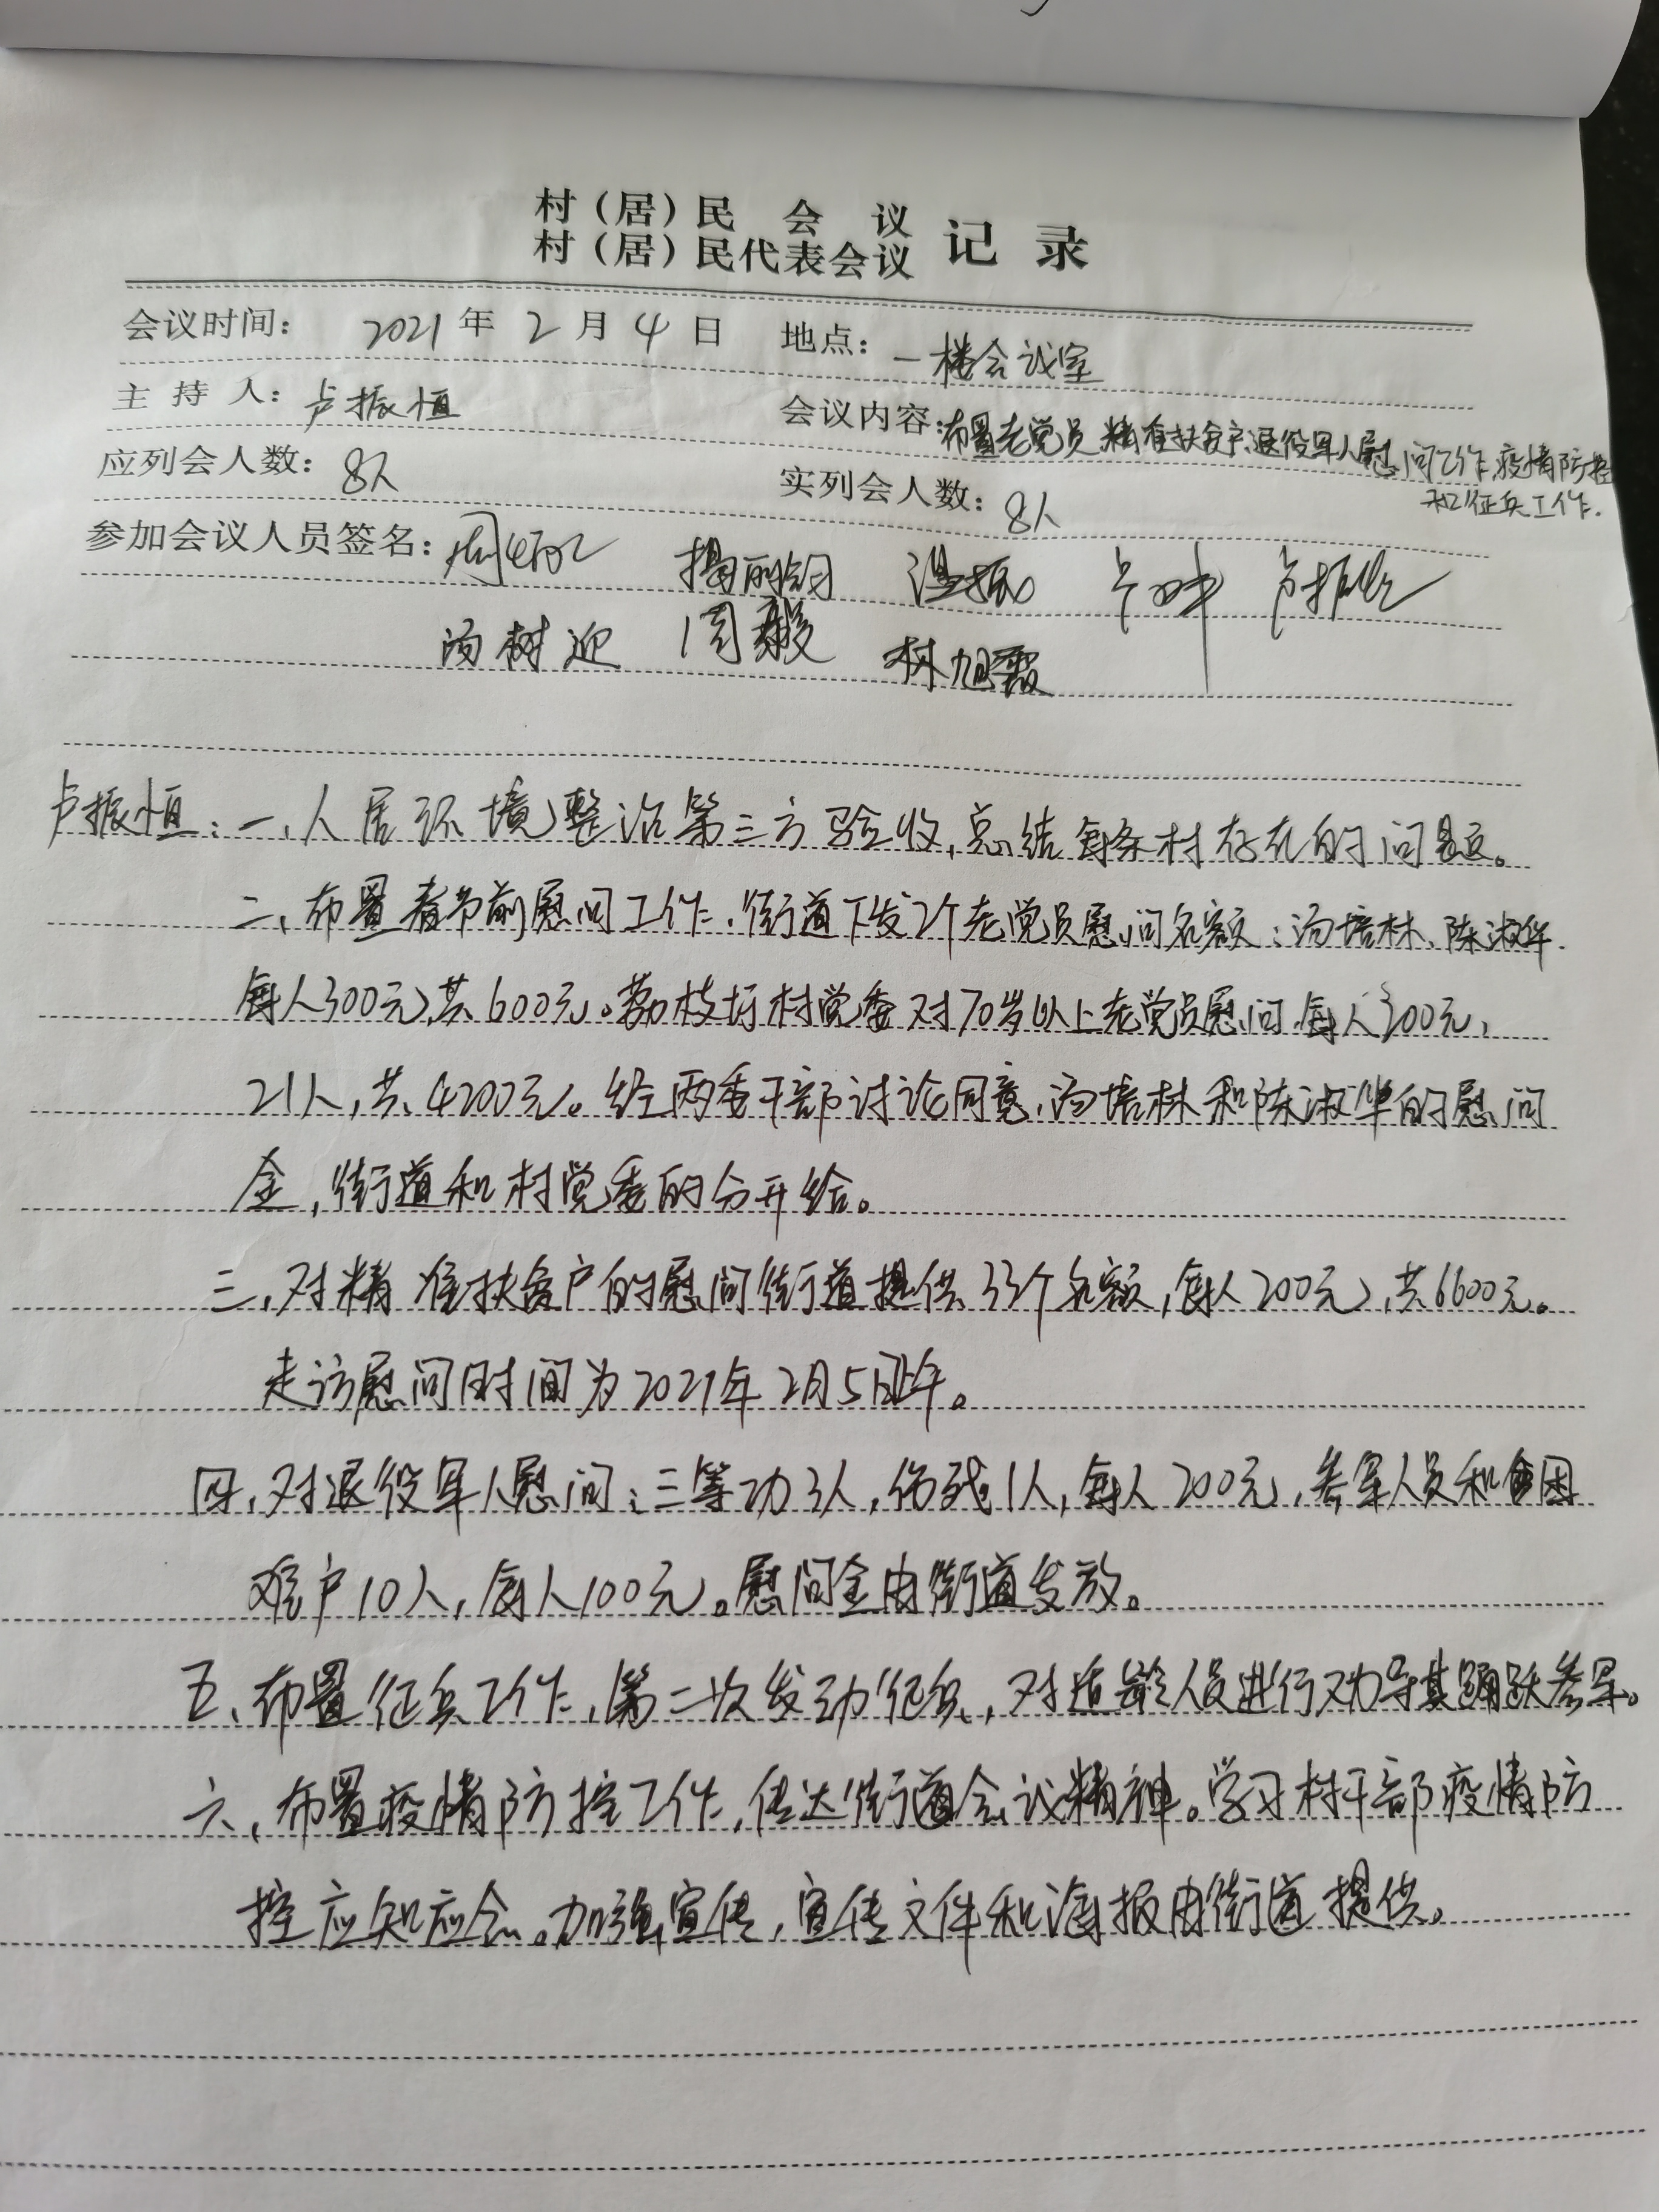 村（居）民 会 议
村（居）民代表会议 记 录
会议时间： 2021 年 2 月 4 日 地点：一楼会议室
主 持 人：卢振恒 会议内容：布置老党员、精准扶贫户、退役军人慰问工作、疫情防控
和征兵工作.
应列会人数：8人 实列会人数：8人
参加会议人员签名：
汤树迎 周毅 林旭霞
卢振恒：一、人居环境整治第三方验收,总结每条村存在的问题。
二、布置春节前慰问工作.街道下发2个老党员慰问名额：汤培林、陈淑华.
每人300元,共600元。荔枝圩村党委对70岁以上老党员慰问.每人200元,
21人,共4200元。经两委干部讨论同意,汤培林和陈淑华的慰问
金,街道和村党委的分开给。
三、对精准扶贫户的慰问街道提供33个名额,每人200元,共6600元。
走访慰问时间为2021年2月5日上午。
四、对退役军人慰问：三等功3人,伤残1人,每人200元,参军人员和困
难户10人,每人100元。慰问金由街道发放。
五、布置征兵工作,第二次发动征兵,对适龄人员进行劝导其踊跃参军。
六、布置疫情防控工作,传达街道会议精神。学习村干部疫情防
控应知应会。加强宣传,宣传文件和海报由街道提供。